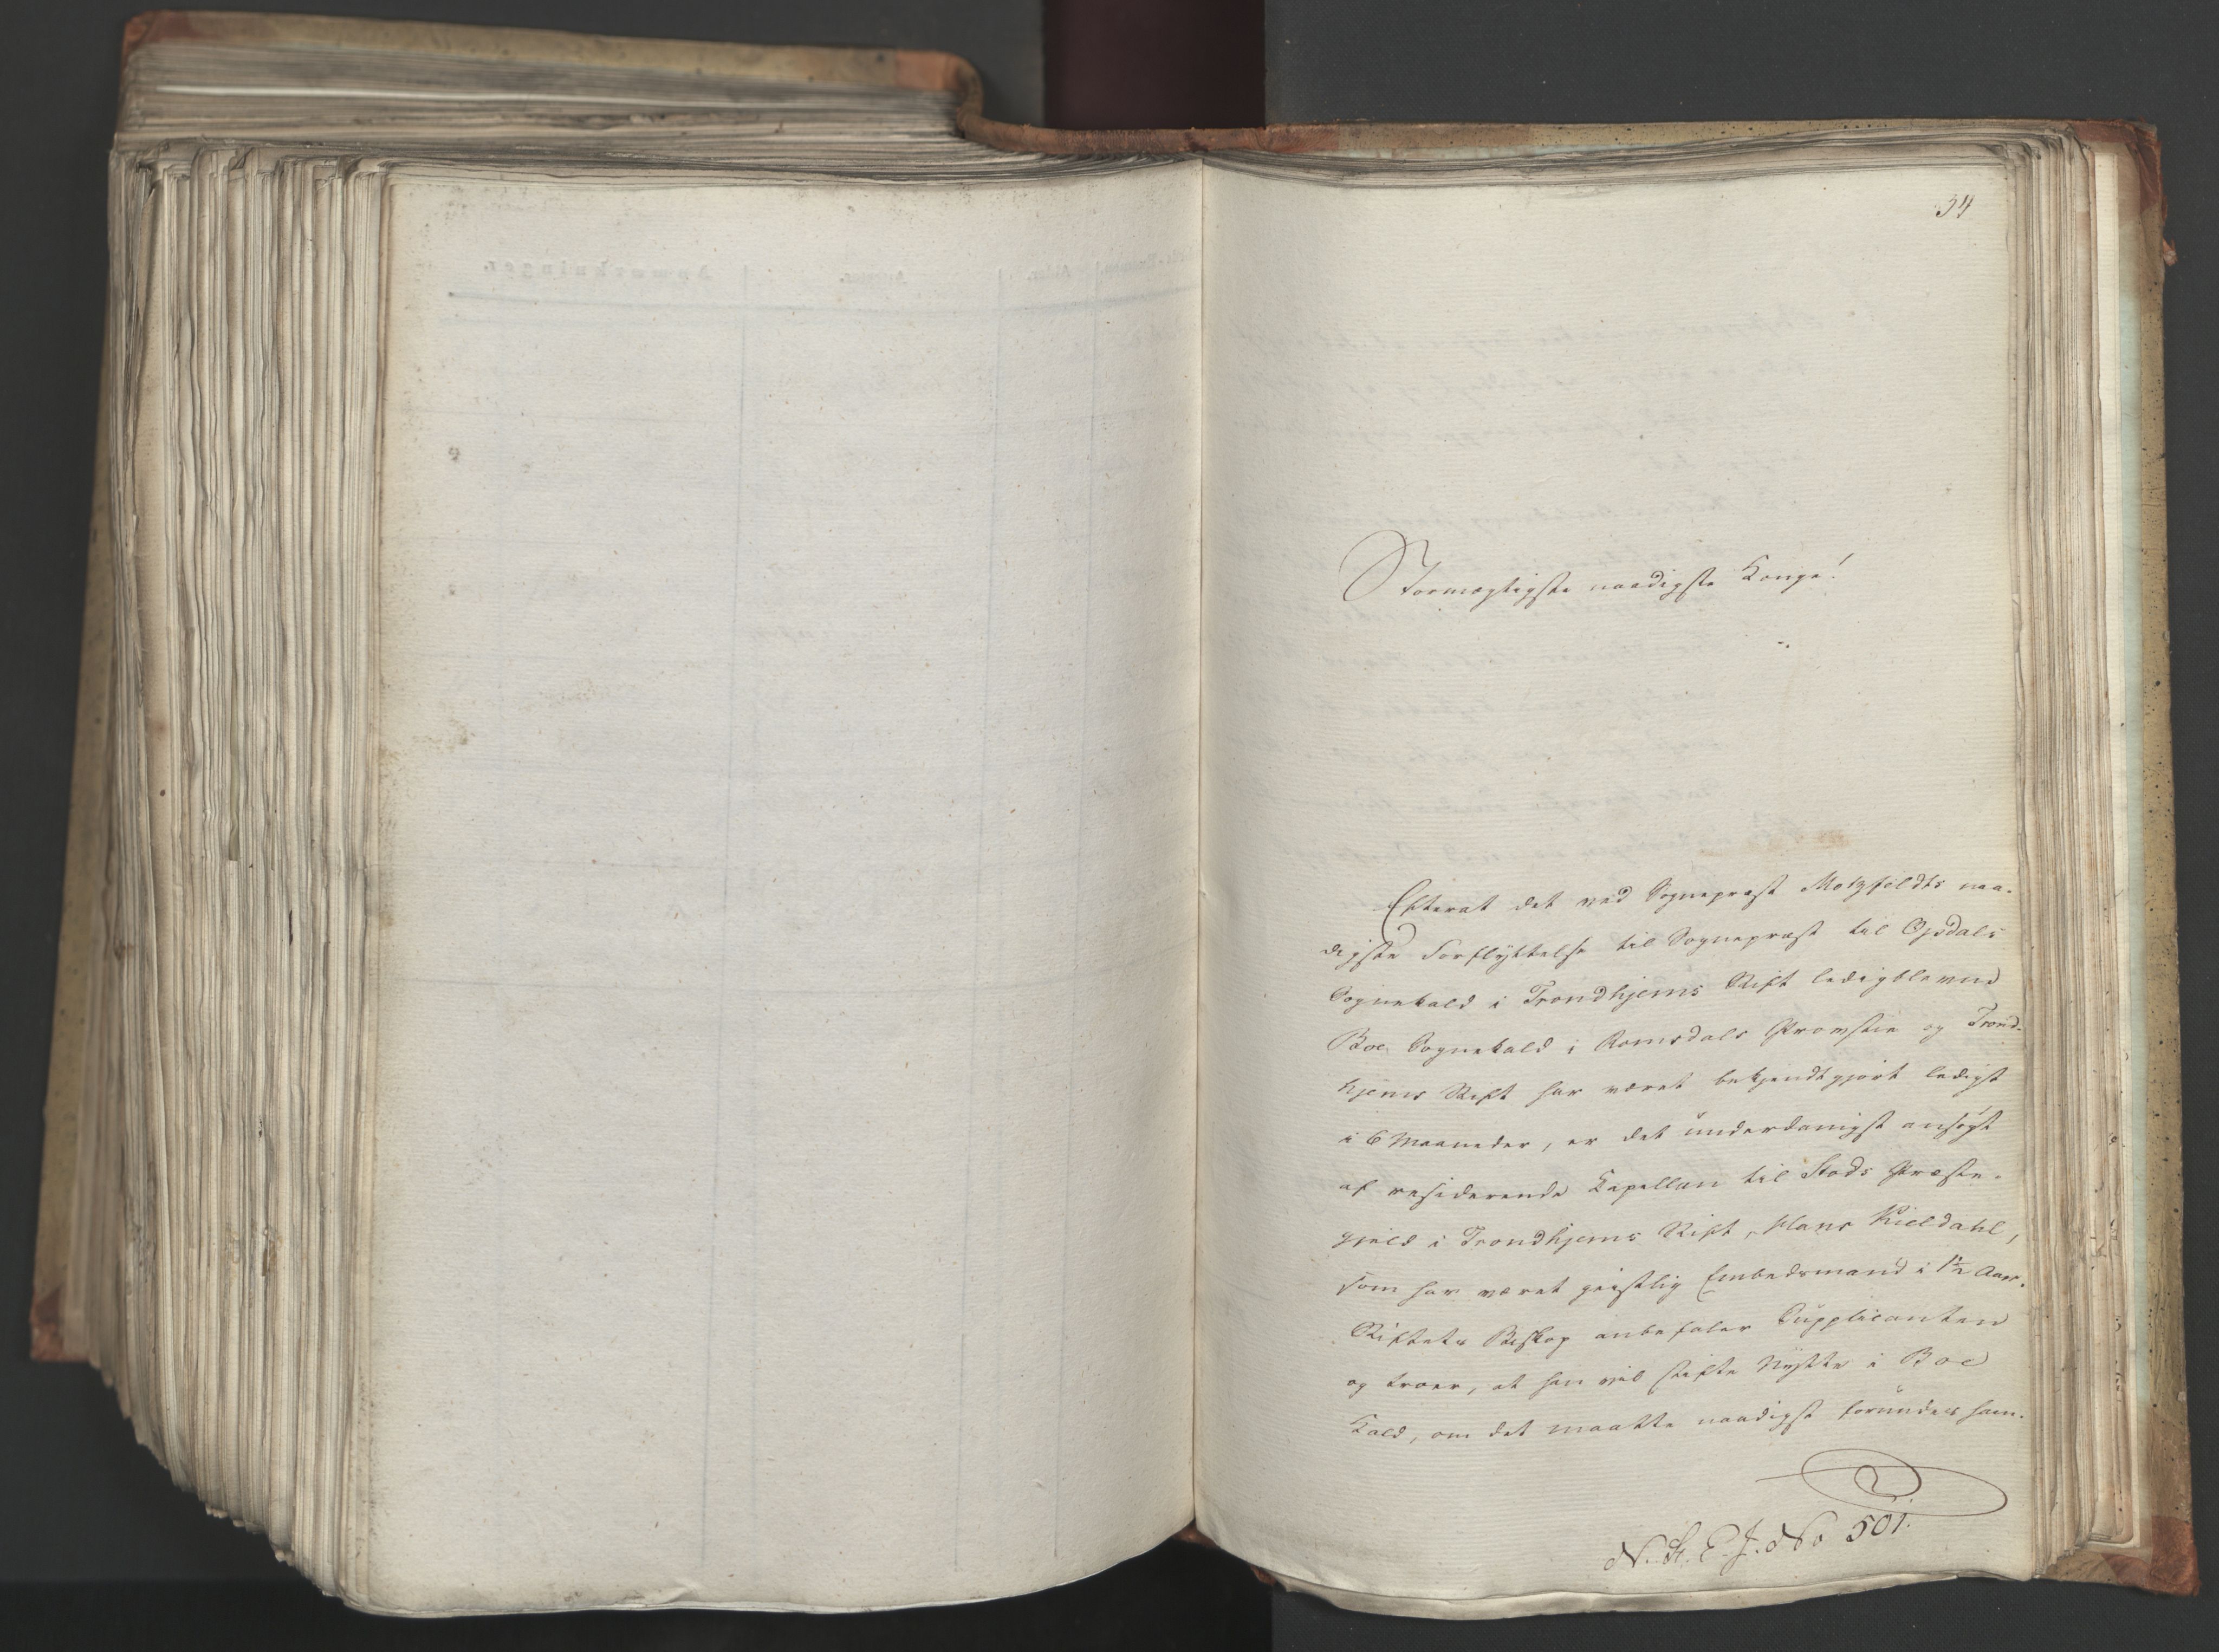 34
Stormægtigste naadigste Konge!
Efterat det ved Sognepræst Motzfeldts naa-
digste Forflÿttelse til Sognepræst til Opdals
Sognekald i Trondhjems Stift ledigblevne
Boe Sognekald i Romsdals Provstie og Trond-
hjems Stift har været bekjendtgjort ledigt
i 6 Maaneder, er det ŭnderdanigst ansøgt
af residerende Kapellan til Stods Præste-
gield i Trondhjems Stift, Hans Kieldahl,
som har været geistlig Embedsmand i 1½ Aar.
Stiftets Biskop anbefaler Sŭpplicanten
og troer, at han vil stifte Nÿtte i Boe
Kald, om det maatte naadigst forŭndes ham.
N. St. E. J. No 501.